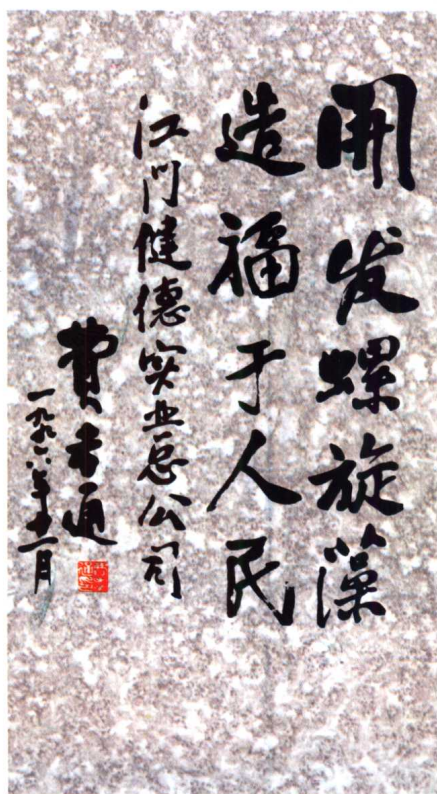 開发螺旋藻
造福于人民
江门健德实业总公司
费孝通
一九九六年十一月